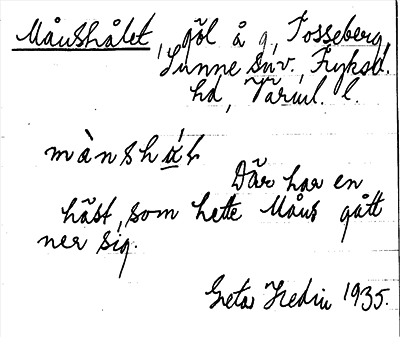 Månshålet, göl å g, Tosseberg,
Sunne snv., Fryksd.
hd, Värml. l.
mànshɷ́ɫ
Där har en
häst, som hette Måns gått
ner sig.
Greta Hedin 1935.